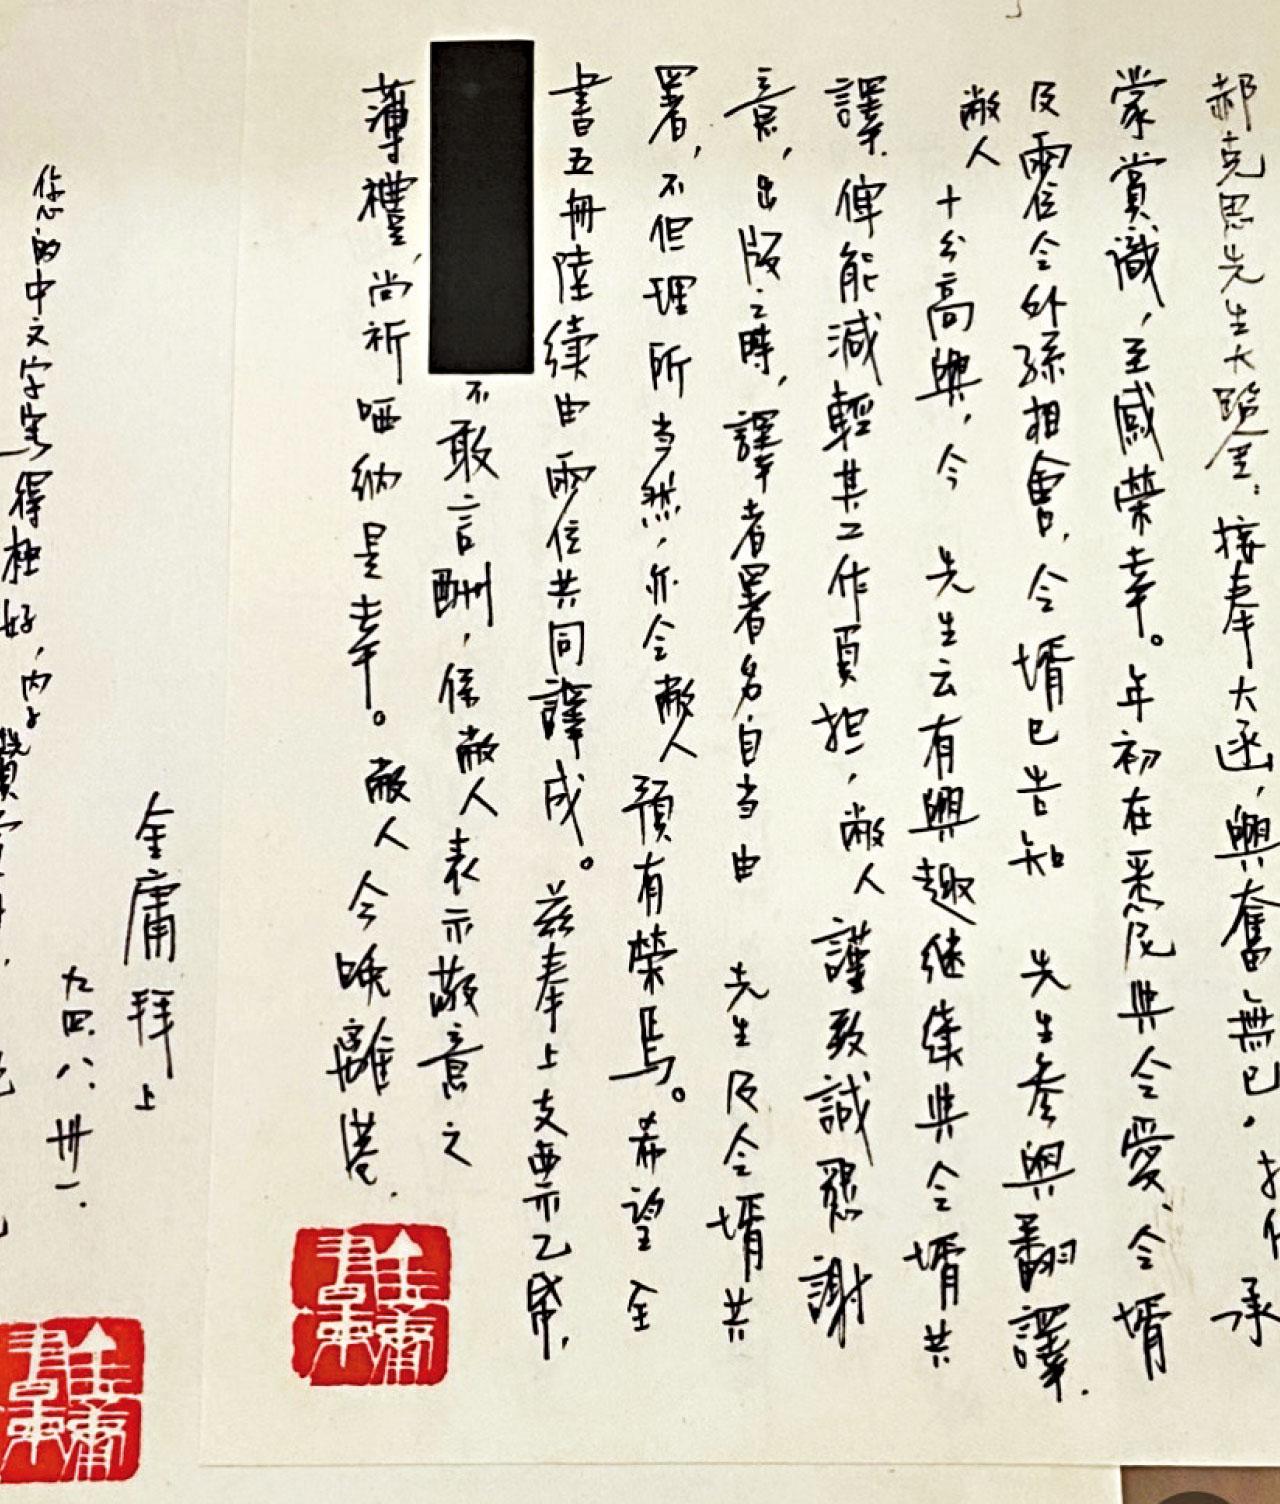 郝克思先生大鑒：接奉大函，興奮無已。拙作承
蒙賞識，至感榮幸。年初在悉尼與令愛、令壻
及兩位令外孫相會，令壻已告知 先生參與翻譯，
敝人十分高興，今 先生云有興趣继續與令壻共
譯，俾能減輕其工作負担，敝人謹致誠懇謝
意，出版之時，譯者署名自当由 先生及令壻共
署，不但理所当然，亦令敝人預有榮焉。希望全
書五冊陸續由兩位共同譯成。兹奉上支票乙帋，
不敢言酬，係敝人表示敬意之
薄禮，尚祈哂納是幸。敝人今晚離港，
金庸書東
金庸拜上
九四、八、卅一、
您的中文字寫得極好，内子
金庸書東